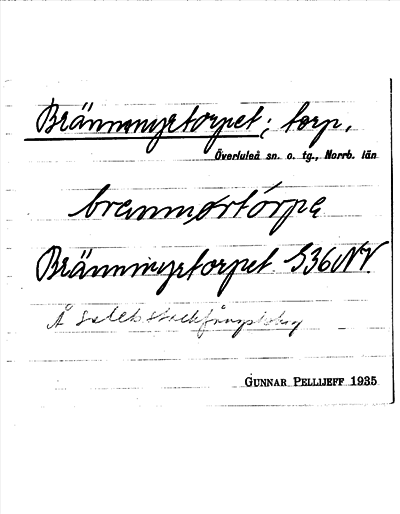 Brännmyrtorpet; torp,
Överluleå sn. o. tg., Norrb. län
brennmørtórpe
Brännmyrtorpet S36NV
Å
GUNNAR PELLIJEFF 1935